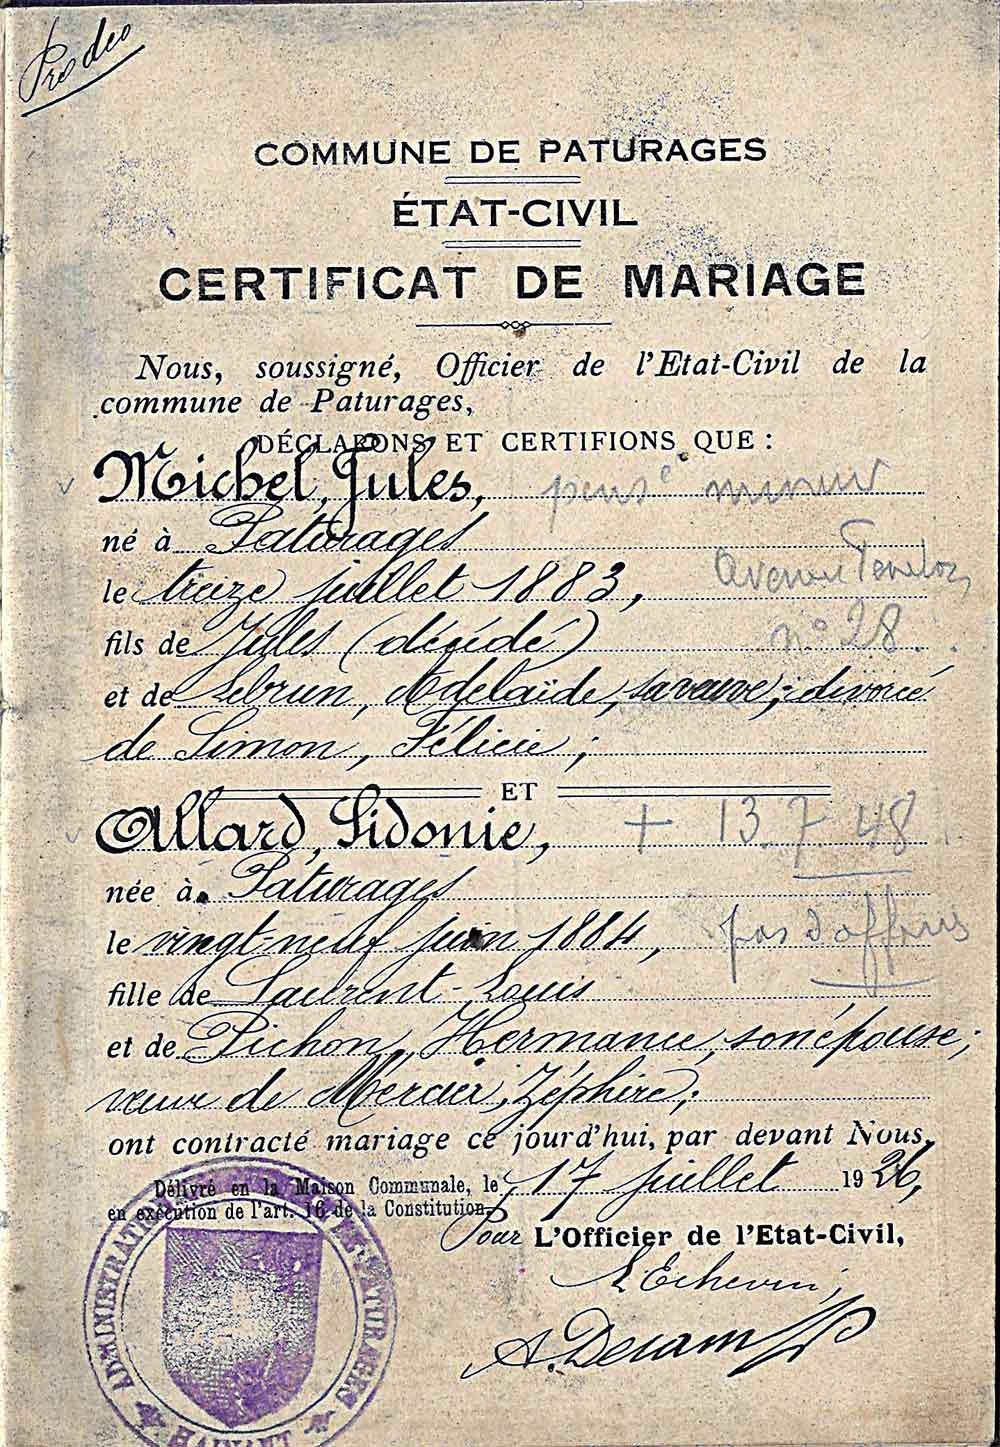 Pro deo
COMMUNE DE PATURAGES
ÉTAT-CIVIL
CERTIFICAT DE MARIAGE
Nous, soussigné, Officier de l'Etat-Civil de la
commune de Paturages,
DÉCLARONS ET CERTIFIONS QUE :
Michel, Jules, pens^é mineur
né à Paturages
le treize juillet 1883, Avenue
fils de Jules (décédé) n° 28
et de Lebrun, Adelaïde, sa veuve; divorcé
de Simon, Félicie;
ET
Allard, Sidonie, + 13.7.48
née à Paturages
le vingt neuf juin 1884, pas d'
fille de Laurent-Louis
et de Pichon, Hermance, son épouse;
veuve de Mercier, Zéphire;
ont contracté mariage ce jourd'hui, par devant Nous.
Délivré en la Maison Communale, le 17 juillet 1926,
en exécution de l'art. 16 de la Constitution.
Pour L'Officier de l'Etat-Civil,
L'Echevin,
A. Decamp
ADMINISTRATION DE PATURAGES
HAINAUT